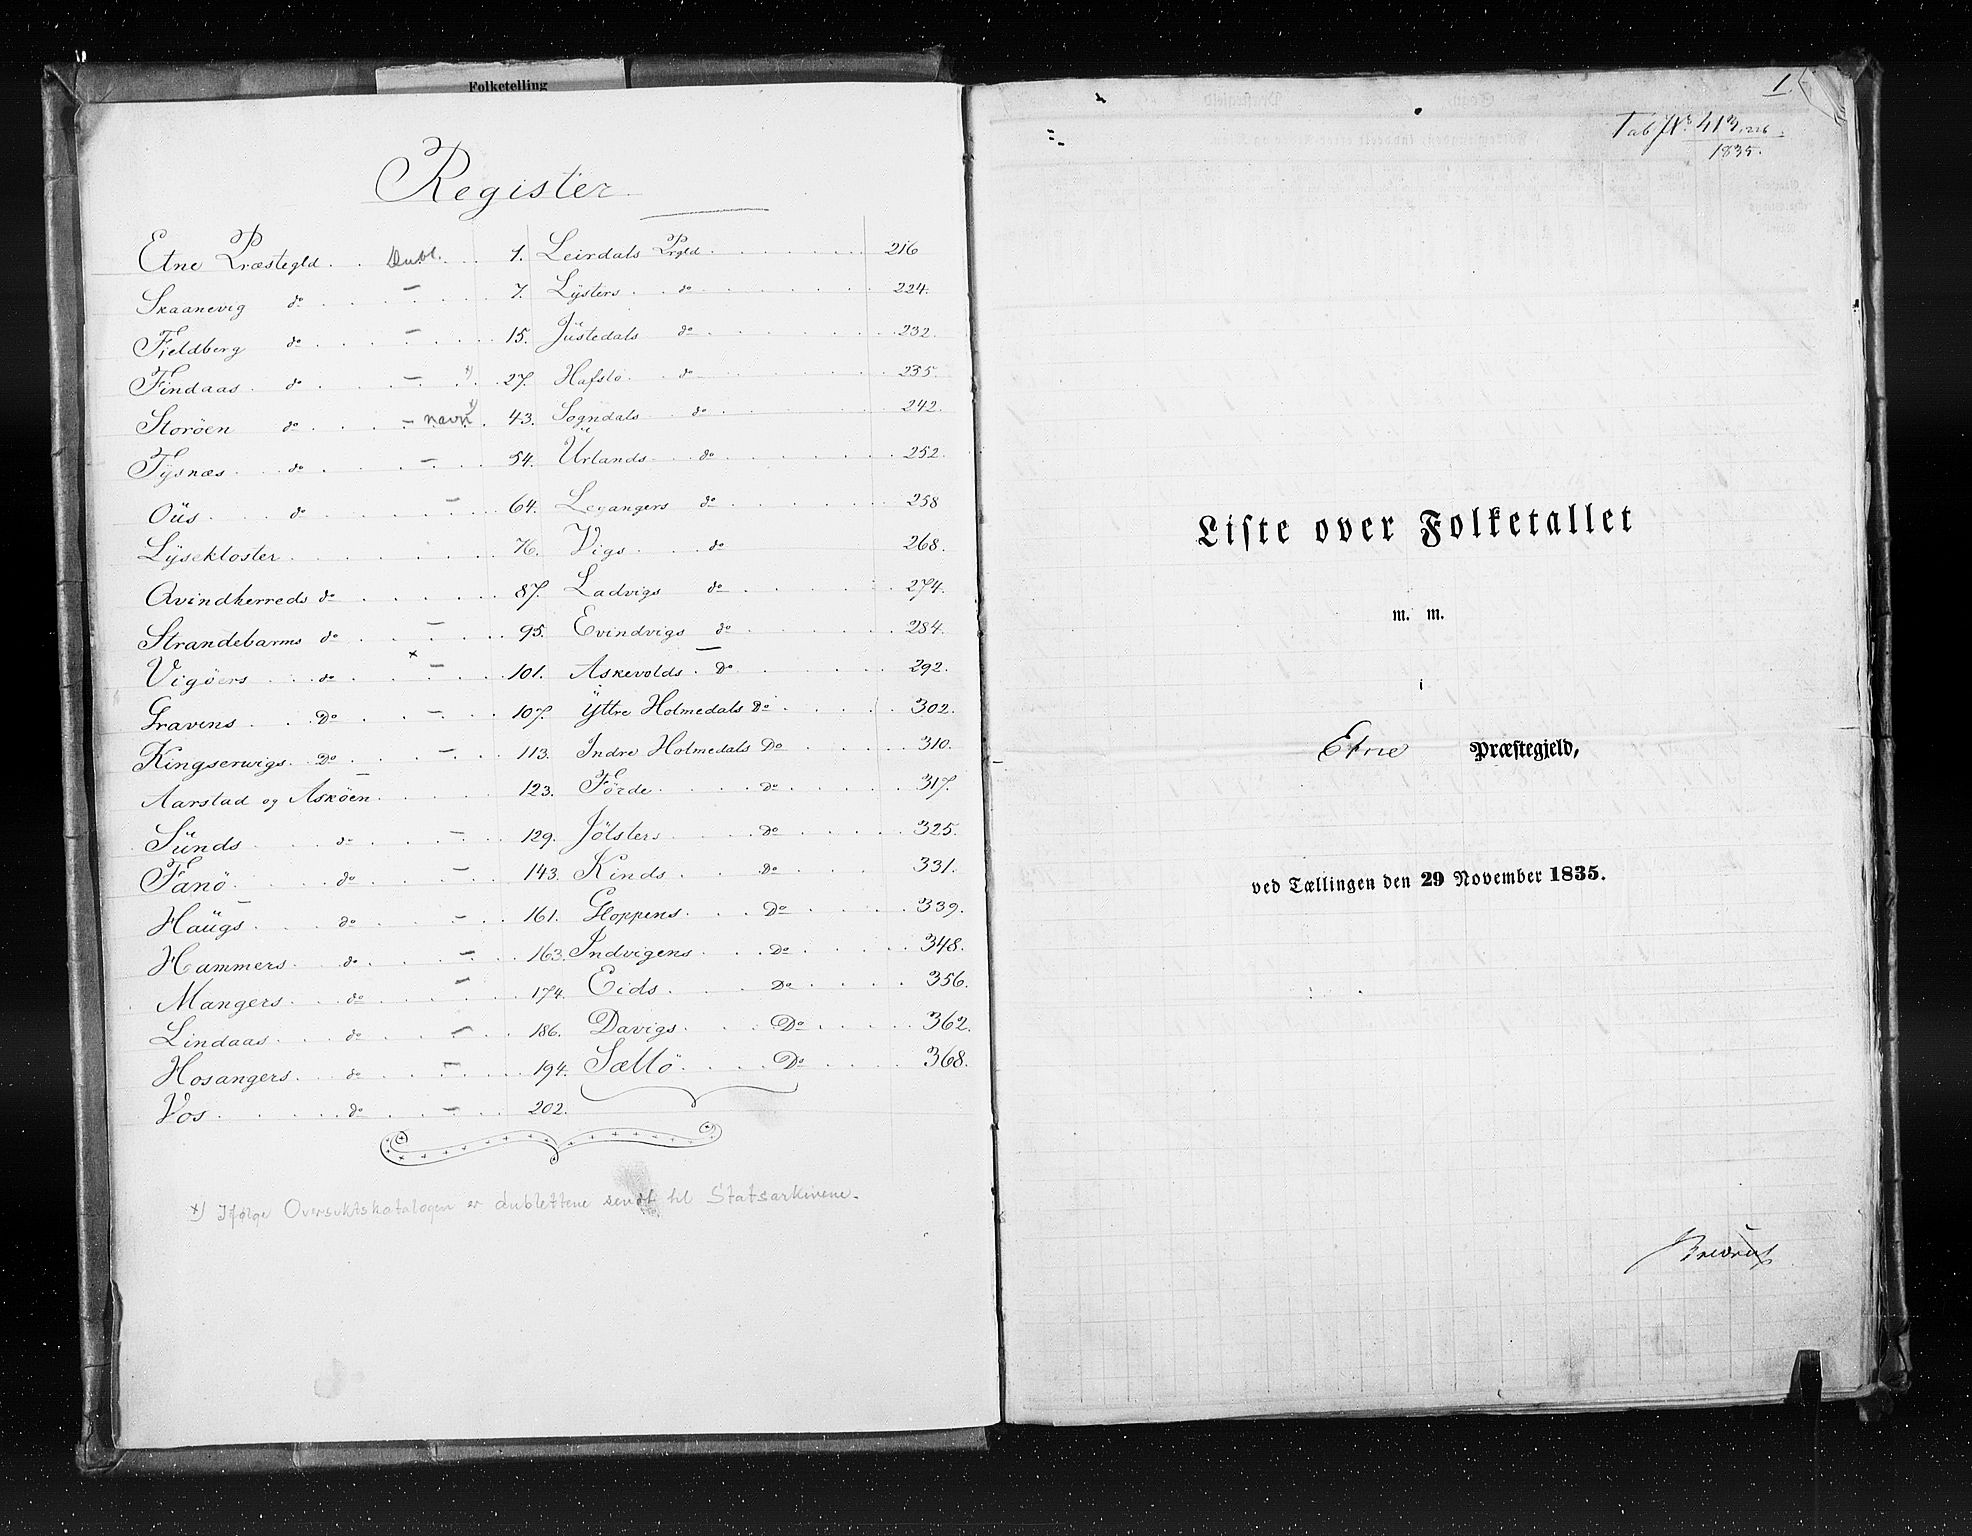 Folketelling
Register
Etne Præstegld . . Dubl. . . 1.
Skaanevig do . . . — . . . 7.
Fjeldberg do . . . — . . . 15.
Findaas . do . . . — x) . . 27.
Storöen do . . . — navn x) . 43.
Tysnæs . . do . . . — . . 54.
Oüs . . . do . . . — . . 64.
Lÿsekloster . . . . . . 76.
Qvindherreds do . . . . . 87.
Strandebarms do . . — . . . 95.
Vigöers . . . do . . x — . . . 101.
Gravens . . . Do . . — . . . 107.
Kingserwigs . Do . . . — . . 113.
Aarstad og Asköen . . . . . 123.
Sünds . . . do . . . — . . 129.
Fanö . . . do . . . — . . 143.
Haügs . . . do . . . — . . 161.
Hammers . . do . . . — . . 163.
Mangers . . do . . . — . . 174.
Lindaas . . do . . . — . . 186.
Hosangers . . do . . . — . . 194.
Vos . . . . do . . . — . . 202.
Leirdals Prgld . . . . . 216
Lÿsters . . do . . . . . 224.
Jüstedals do . . . . . 232.
Hafslo . . do . . . . . 235.
Sogndals . . do . . . . . 242.
Ürlands . . do . . . . . 252.
Leganger​s do . . . . . 258
Vigs . . . do . . . . . 268.
Ladvigs do . . . . . 274.
Evindvigs do . . . . . 284.
Askevolds . Do . . . . . 292.
Ÿttre Holmedals Do . . . . 302.
Indre Holmedals Do . . . . 310.
Förde . . . Do . . . . 317.
Jölsters . . . Do . . . . 325.
Kinds . . . Do . . . . 331.
Gloppens . . . Do . . . . 339.
Indvigens . . . Do . . . . 348.
Eids . . . Do . . . . 356.
Davigs . . . Do . . . . 362.
Sællö . . . Do . . . . 368.
x) Ifølge Oversiktskatalogen er dublettene sendt til Statsarkivene.
1.
Tab No 413,226.
1835.
Liste over Folketallet
m. m.
i
Etne Præstegjeld,
ved Tællingen den 29 November 1835.